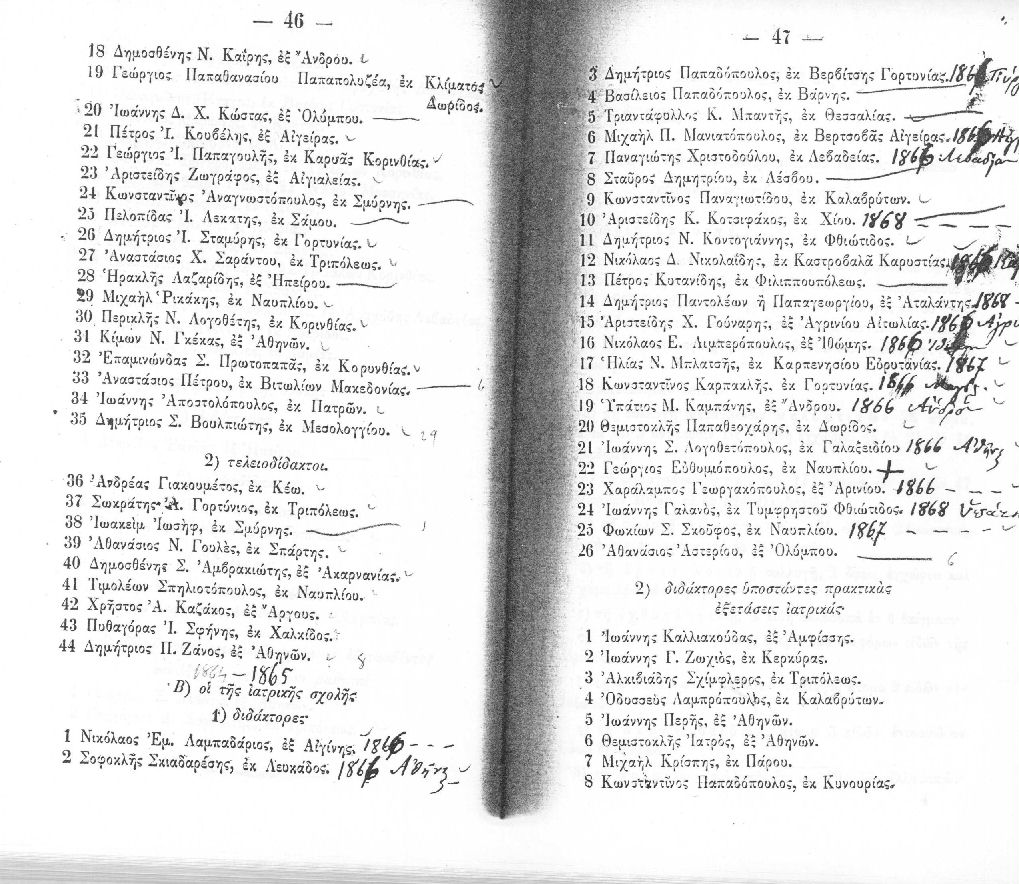 — 46 —
18 Δημοσθένης Ν. Καΐρης, ἐξ Ἄνδρου.
19 Γεώργιος Παπαθανασίου Παπαπολυζέα, ἐκ Κλίματος
Δωρίδος.
20 Ἰωάννης Δ. Χ. Κώστας, ἐξ Ὀλύμπου.
21 Πέτρος Ἰ. Κουβέλης, ἐξ Αἰγείρας.
22 Γεώργιος Ἰ. Παπαγουλῆς, ἐκ Καρυᾶς Κορινθίας.
23 Ἀριστείδης Ζωγράφος, ἐξ Αἰγιαλείας.
24 Κωνσταντῖνος Ἀναγνωστόπουλος, ἐκ Σμύρνης.
25 Πελοπίδας Ἰ. Λεκάτης, ἐκ Σάμου.
26 Δημήτριος Ἰ. Σταμύρης, ἐκ Γορτυνίας.
27 Ἀναστάσιος Χ. Σαράντου, ἐκ Τριπόλεως.
28 Ἡρακλῆς Λαζαρίδης, ἐξ Ἠπείρου.
29 Μιχαὴλ Ῥικάκης, ἐκ Ναυπλίου.
30 Περικλῆς Ν. Λογοθέτης, ἐκ Κορινθίας.
31 Κίμων Ν. Γκέκας, ἐξ Ἀθηνῶν.
32 Ἐπαμινώνδας Σ. Πρωτοπαπᾶς, ἐκ Κορυνθίας.
33 Ἀναστάσιος Πέτρου, ἐκ Βιτωλίων Μακεδονίας. 6
34 Ἰωάννης Ἀποστολόπουλος, ἐκ Πατρῶν.
35 Δημήτριος Σ. Βουλπιώτης, ἐκ Μεσολογγίου. 29
2) τελειοδίδακτοι.
36 Ἀνδρέας Γιακουμέτος, ἐκ Κέω.
37 Σωκράτης Ἀ. Γορτύνιος, ἐκ Τριπόλεως.
38 Ἰωακεὶμ Ἰωσὴφ, ἐκ Σμύρνης. 1
39 Ἀθανάσιος Ν. Γουλὲς, ἐκ Σπάρτης.
40 Δημοσθένης Σ. Ἀμβρακιώτης, ἐξ Ἀκαρνανίας.
41 Τιμολέων Σπηλιοτόπουλος, ἐκ Ναυπλίου.
42 Χρῆστος Ἀ. Καζάκος, ἐξ Ἄργους.
43 Πυθαγόρας Ἰ. Σφήνης, ἐκ Χαλκίδος.
44 Δημήτριος Π. Ζάνος, ἐξ Ἀθηνῶν. 8
1864 – 1865
Β) οἱ τῆς ἰατρικῆς σχολῆς
1) διδάκτορες·
1 Νικόλαος Ἐμ. Λαμπαδάριος, ἐξ Αἰγίνης. 1866 - - -
2 Σοφοκλῆς Σκιαδαρέσης, ἐκ Λευκάδος. 1866
— 47 —
3 Δημήτριος Παπαδόπουλος, ἐκ Βερβίτσης Γορτυνίας. 1866
4 Βασίλειος Παπαδόπουλος, ἐκ Βάρνης.
5 Τριαντάφυλλος Κ. Μπαντῆς, ἐκ Θεσσαλίας.
6 Μιχαὴλ Π. Μανιατόπουλος, ἐκ Βερτσοβᾶς Αἰγείρας. 1866
7 Παναγιώτης Χριστοδούλου, ἐκ Λεβαδείας. 1866
8 Σταῦρος Δημητρίου, ἐκ Λέσβου.
9 Κωνσταντῖνος Παναγιωτίδου, ἐκ Καλαβρύτων.
10 Ἀριστείδης Κ. Κοτσιφάκος, ἐκ Χίου. 1868
11 Δημήτριος Ν. Κοντογιάννης, ἐκ Φθιώτιδος.
12 Νικόλαος Δ. Νικολαΐδης, ἐκ Καστροβαλᾶ Καρυστίας.
13 Πέτρος Κυτανίδης, ἐκ Φιλιππουπόλεως.
14 Δημήτριος Παντολέων ἢ Παπαγεωργίου, ἐξ Ἀταλάντης. 1868 –
15 Ἀριστείδης Χ. Γούναρης, ἐξ Ἀγρινίου Αἰτωλίας. 1866
16 Νικόλαος Ε. Λιμπερόπουλος, ἐξ Ἰθώμης. 1866
17 Ἠλίας Ν. Μπλατσῆς, ἐκ Καρπενησίου Εὐρυτανίας. 1867
18 Κωνσταντῖνος Καρπακλῆς, ἐκ Γορτυνίας. 1866
19 Ὑπάτιος Μ. Καμπάνης, ἐξ Ἄνδρου. 1866 Ἄνδρου
20 Θεμιστοκλῆς Παπαθεοχάρης, ἐκ Δωρίδος.
21 Ἰωάννης Σ. Λογοθετόπουλος, ἐκ Γαλαξειδίου 1866
22 Γεώργιος Εὐθυμιόπουλος, ἐκ Ναυπλίου. +
23 Χαράλαμπος Γεωργακόπουλος, ἐξ Ἀρινίου. 1866 - - -
24 Ἰωάννης Γαλανὸς, ἐκ Τυμφρηστοῦ Φθιώτιδος. 1868
25 Φωκίων Σ. Σκοῦφος, ἐκ Ναυπλίου. 1867 - - -
26 Ἀθανάσιος Ἀστερίου, ἐξ Ὀλύμπου. 6
2) διδάκτορες ὑποστάντες πρακτικὰς
ἐξετάσεις ἰατρικάς·
1 Ἰωάννης Καλλιακούδας, ἐξ Ἀμφίσσης.
2 Ἰωάννης Γ. Ζωχιὸς, ἐκ Κερκύρας.
3 Ἀλκιβιάδης Σχίμφλερος, ἐκ Τριπόλεως.
4 Ὀδυσσεὺς Λαμπρόπουλος, ἐκ Καλαβρύτων.
5 Ἰωάννης Περῆς, ἐξ Ἀθηνῶν.
6 Θεμιστοκλῆς Ἰατρὸς, ἐξ Ἀθηνῶν.
7 Μιχαὴλ Κρίσπης, ἐκ Πάρου.
8 Κωνσταντῖνος Παπαδόπουλος, ἐκ Κυνουρίας.